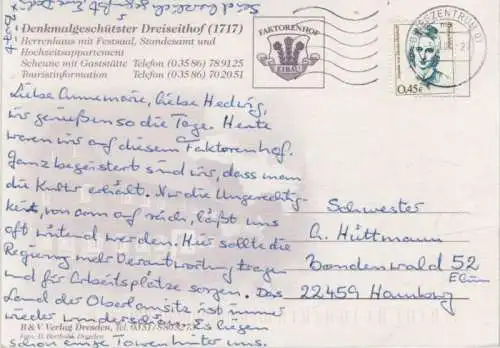 Denkmalgeschützter Dreiseithof (1717)
Herrenhaus mit Festsaal, Standesamt und
Hochzeitsappartement
Scheune mit Gaststätte Telefon (0 35 86) 78 91 25
Touristinformation Telefon (0 35 86) 70 20 51
FAKTORENHOF
EIBAU
0,45€
Liebe Annemarie, liebe Hedwig,
wir genießen so die Tage. Heute
waren wir auf diesem Faktorenhof.
Ganz begeistert sind wir, dass man
die Kultur erhält. Nur die Ungerechtig-
keit, von arm auf reich, läßt uns
oft wütend werden. Hier sollte die
Regierung mehr Verantwortung tragen
und für Arbeitsplätze sorgen. Das
Land der Oberlausitz ist immer
wieder wunderschön. Es liegen
schon einige Touren hinter uns.
Schwester
A. Hüttmann
Bondenwald 52
22459 Hamburg
B & V Verlag Dresden, Tel. 0351/
Foto: D. Berthold, Dresden